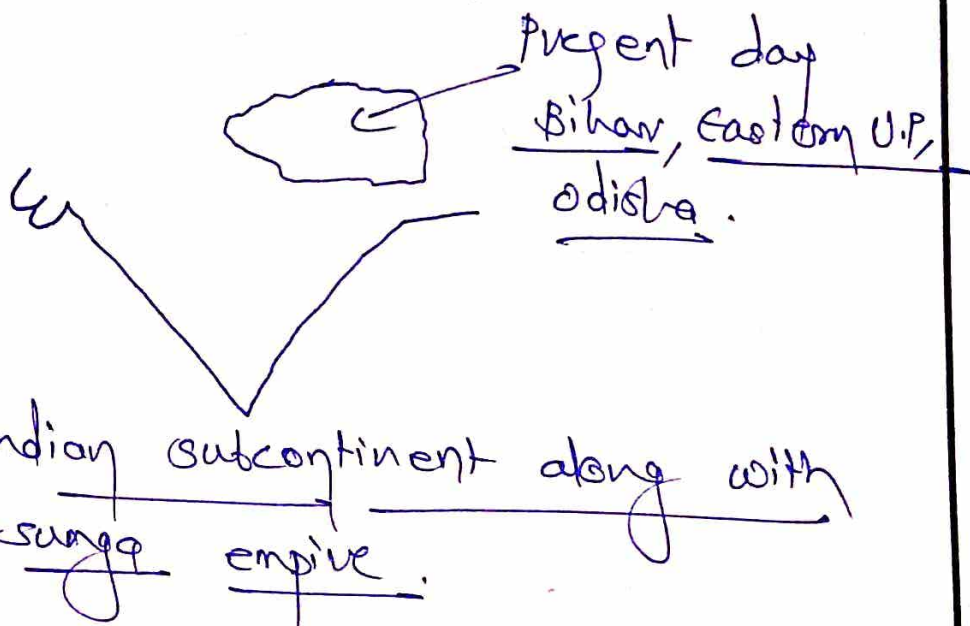 Present day
Bihar, Eastern U.P,
Odisha.
ndian subcontinent along with
sunga empire.